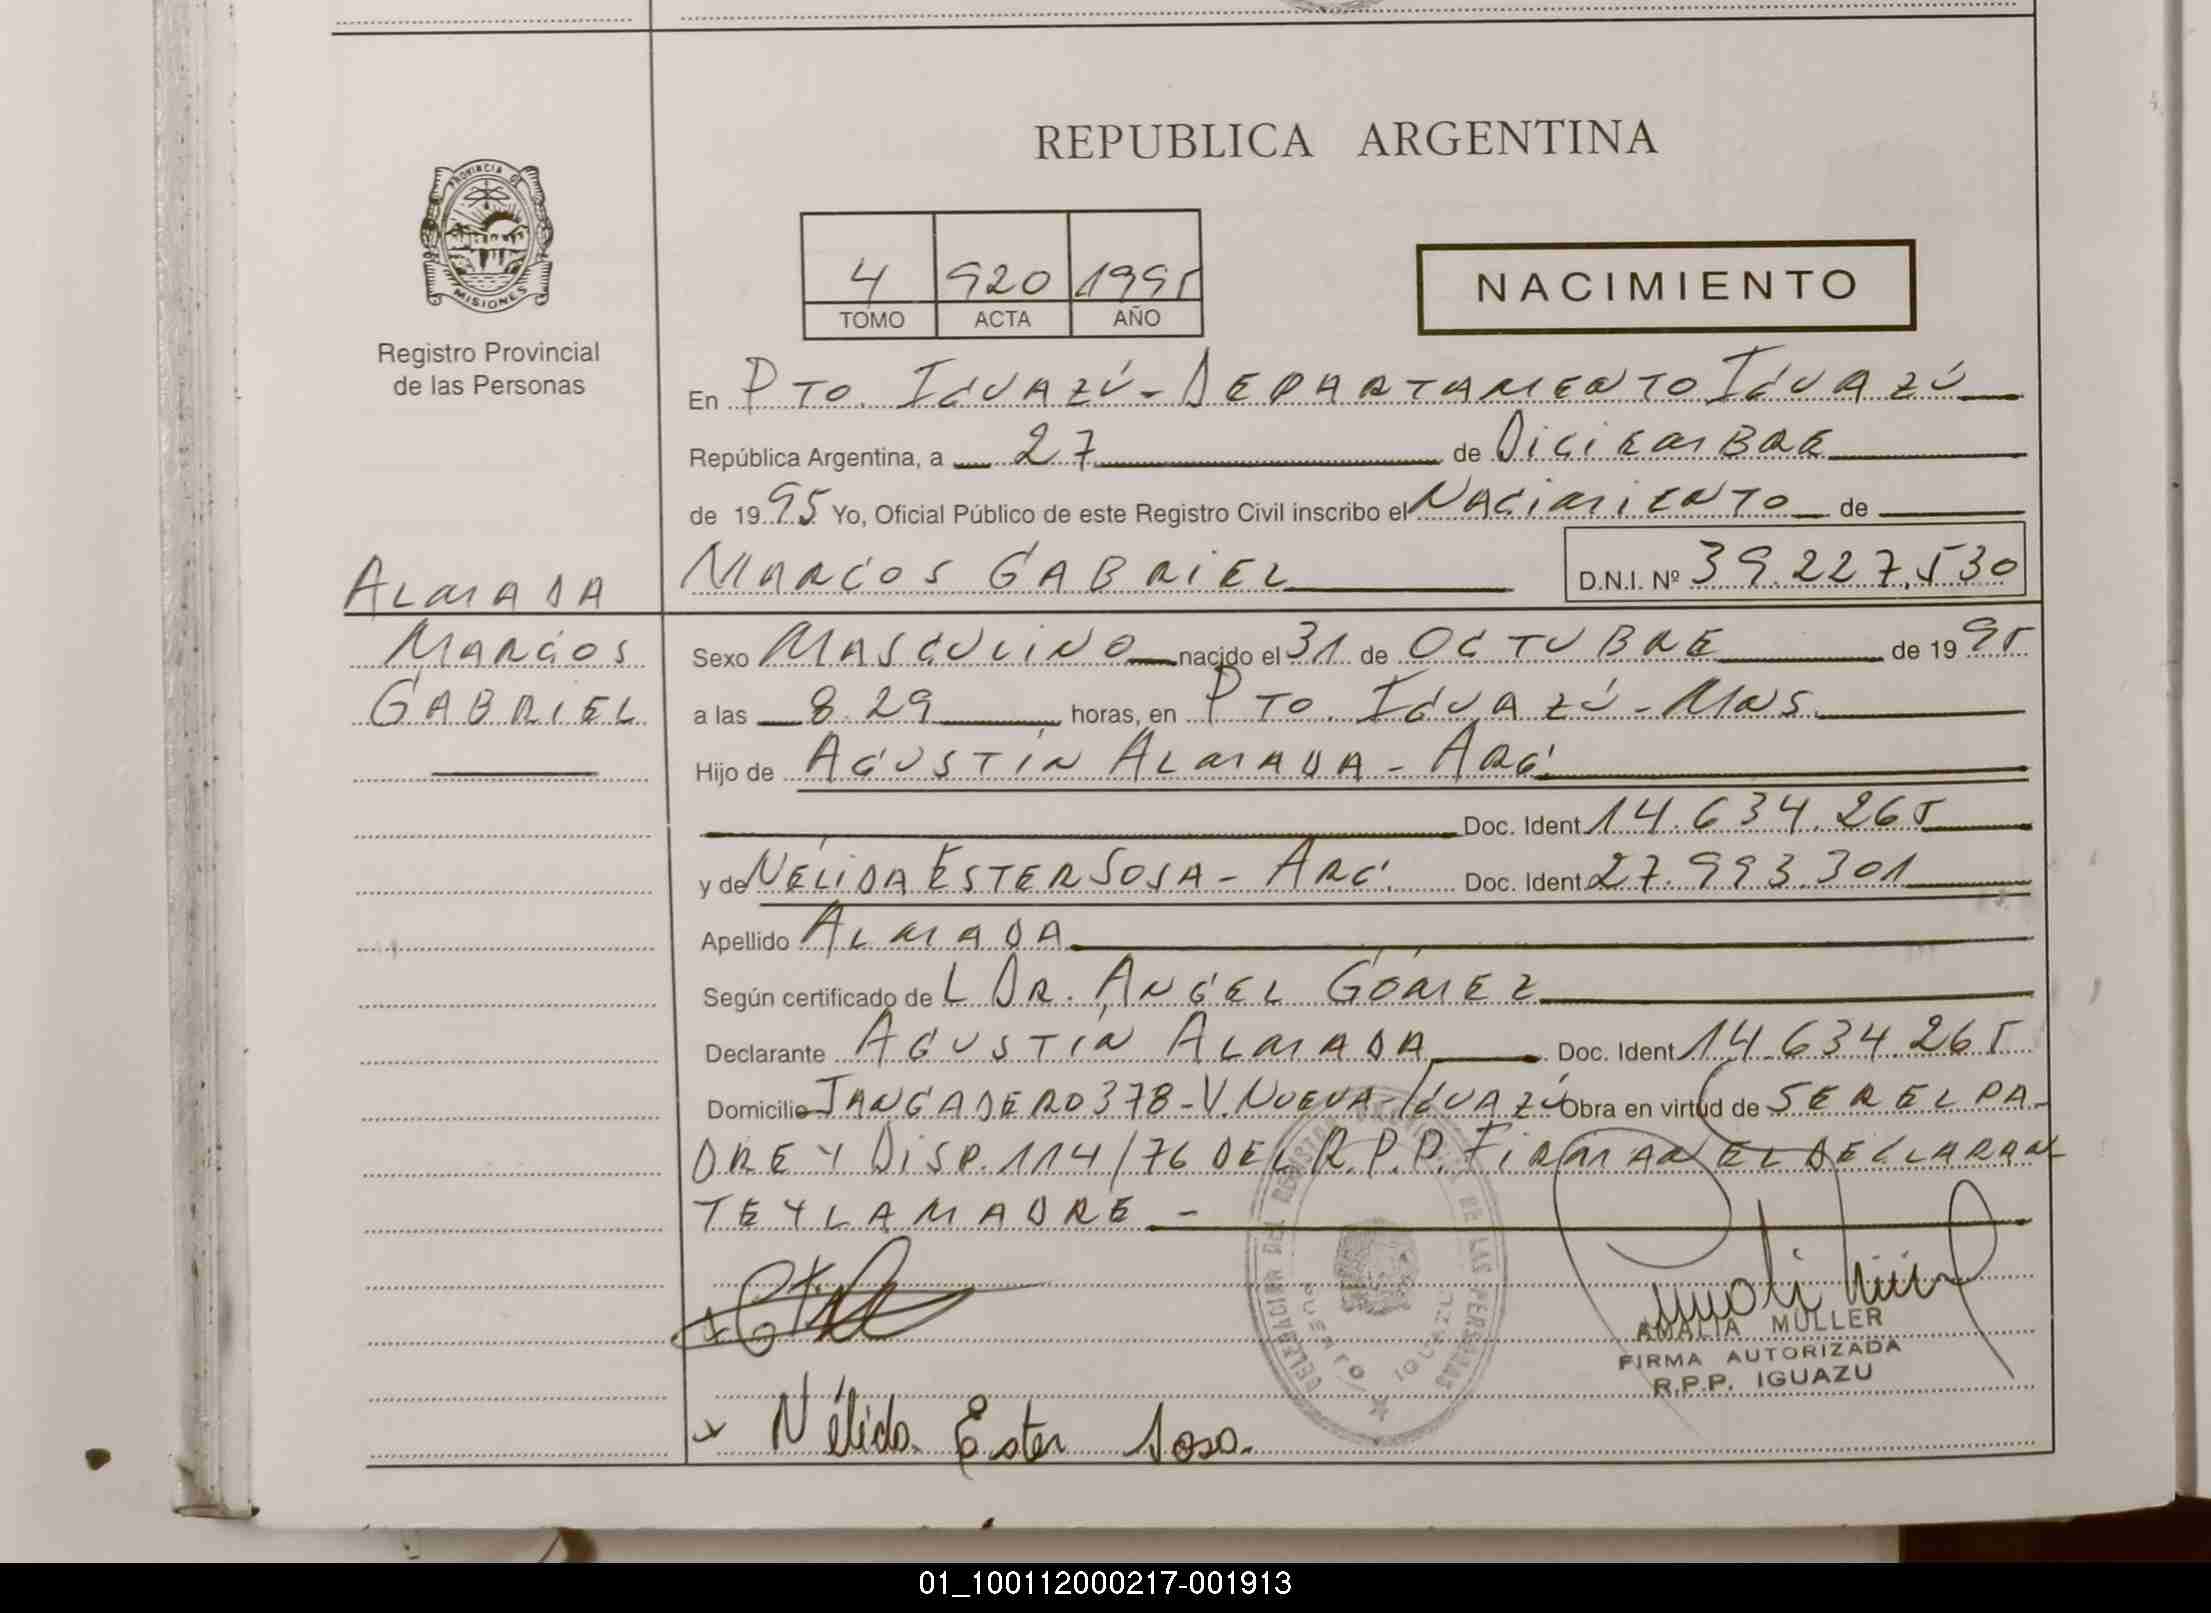 REPUBLICA ARGENTINA
PROVINCIA DE
MISIONES
Registro Provincial
de las Personas
4 920 1995
TOMO ACTA AÑO
NACIMIENTO
En PTO. IGUAZÚ - DEPARTAMENTO IGUAZÚ
República Argentina, a 27 de DICIEMBRE
de 1995 Yo, Oficial Público de este Registro Civil inscribo el NACIMIENTO de
MARCOS GABRIEL D.N.I. Nº 39.227.530
ALMADA
MARCOS
GABRIEL
Sexo MASCULINO nacido el 31 de OCTUBRE de 1995
a las 8.29 horas, en PTO. IGUAZÚ - MNS.
Hijo de AGUSTÍN ALMADA - ARG.
Doc. Ident 14.634.265
y de NÉLIDA ESTER SOSA - ARG. Doc. Ident 27.993.301
Apellido ALMADA
Según certificado de L DR. ÁNGEL GÓMEZ
Declarante AGUSTÍN ALMADA Doc. Ident 14.634.265
Domicilio JANGADERO 378 - V. NUEVA - IGUAZÚ Obra en virtud de SER EL PA-
DRE Y DISP. 114/76 DEL R.P.P. FIRMAN EL DECLARAN
TE Y LA MADRE -
DELEGACION DEL REGISTRO PROVINCIAL DE LAS PERSONAS
PUERTO IGUAZU
AMALIA MULLER
FIRMA AUTORIZADA
R.P.P. IGUAZU
Nélida Ester Sosa.
01_100112000217-001913